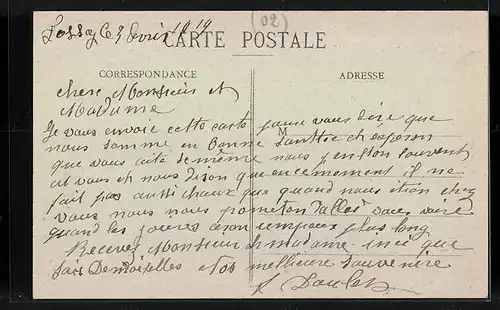 (02)
le 3 fevrie 1919
CARTE POSTALE
CORRESPONDANCE
ADRESSE
chere Monsieur et
Madame
M
Je vous envoie cette carte pour vous dire que
nous somme en bonne santtse et éspéron
que vous aite de même nous penston souvent
at vous et nous dison que en cemement il ne
fait pas aussi chaux que quand nous ition chez
vous nous nous prometon dallés vous voire
quand les joures seron un peux plus long
Recevez Monsieur et madame que
Demoiselles et nos meilleure souvenire